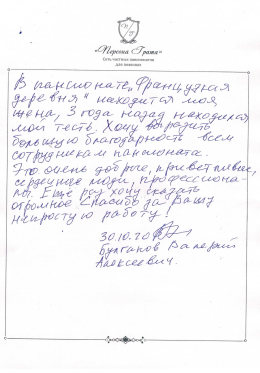 «Персона Грата»
Сеть частных пансионатов
для пожилых
В пансионате „Французкая
деревня" находится моя
жена, 3 года назад находился
мой тесть. Хочу выразить
большую благодарность всем
сотрудникам пансионата.
Это очень доброе, приветливые,
сердечные люди, профессиона-
лы. Еще раз хочу сказать
огромное Спасибо за Вашу
непростую работу!
30.10.20
Булгаков Валерий
Алексеевич.